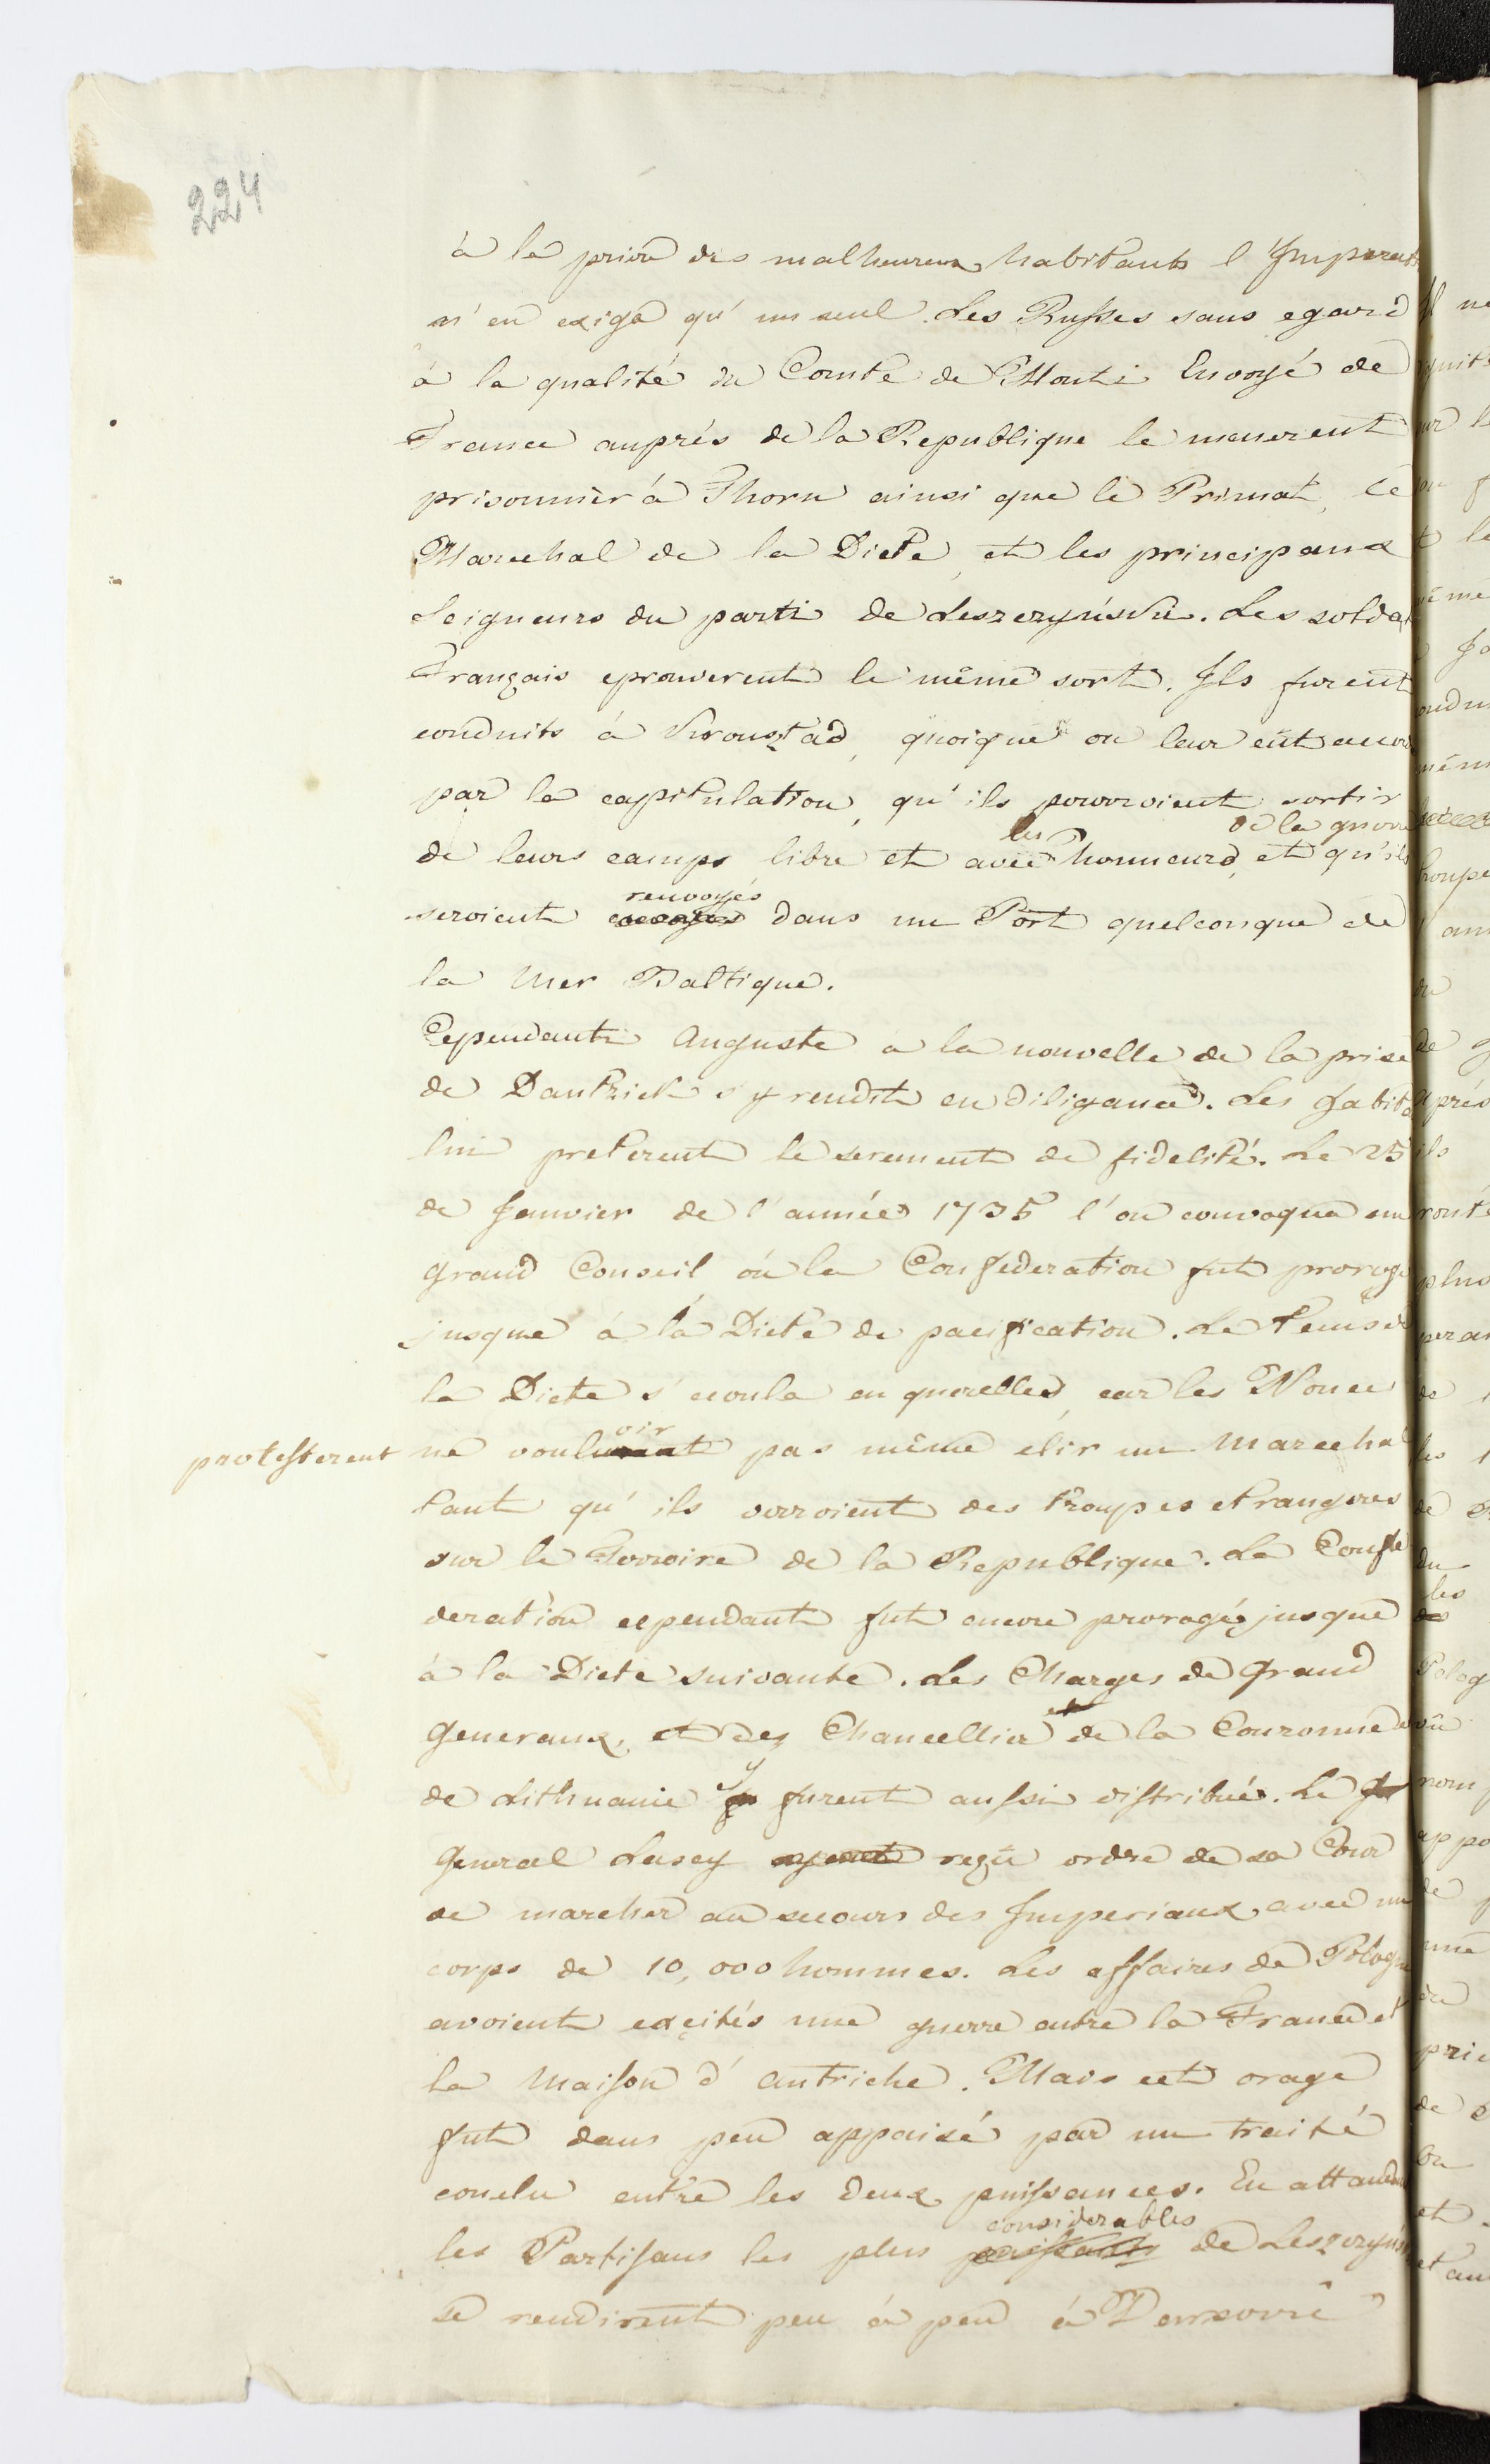 224
à la priere des malheureux habitants l'Imperat
n'en exiga qu'un seul. Les Russes sans egard
à la qualité du Comte de Monti Envoyé de
France auprés de la Republique le menerent
prisonnièr á Thorn ainsi que le Primat, le
Marechal de la Diete, et les principaux
Seigneurs du parti de Leszczyński. Les solda
Français eprouverent le même sort. Ils furent
conduits á Kronsztad, quoique on leur eût accor
par la capitulation, qu'ils pourroient sortir
les de la guerre
de leurs camps libre et avec honneurs, et qu'ils
renvoyés
seroient dans un Port quelconque de
la Mer Baltique.
Cependant Auguste a la nouvelle de la prise
de Dantzick s'y rendit en diligance. Les habita
lui preterent le serement de fidelité. Le 25
de Janvier de l'année 1735 l'on convoqua un
grand Conseil où la Confederation fut proroge
jusque à la Diete de pacification. Le tems de
la Diete s'ecoula en querelles, car les Nonce
oir
protesterent ne voulurent pas même elir un Marecha
tant qu'ils verroient des troupes etrangeres
sur le Terroire de la Republique. La Confe
deration cependant fut encore prorogée jusque
à la Diete suivante. Les Charges de Grand
et
Generaux, et des Chancellier de la Couronne e
y
de Lithuanie furent aussi distribués. Le
General Lascy reçu ordre de sa Cour
de marcher au secours des Imperiaux avec un
corps de 10,000 hommes. Les affaires de Pologn
avoient exçités une guerre entre la France et
la Maison d'Autriche. Mais cet orage
fut dans peu appaisé par un traité
conclu entre les deux puissances. En attandan
considerables
les Partisans les plus puissants de Leszczyńs
se rendirent peu á peu á Varsovie